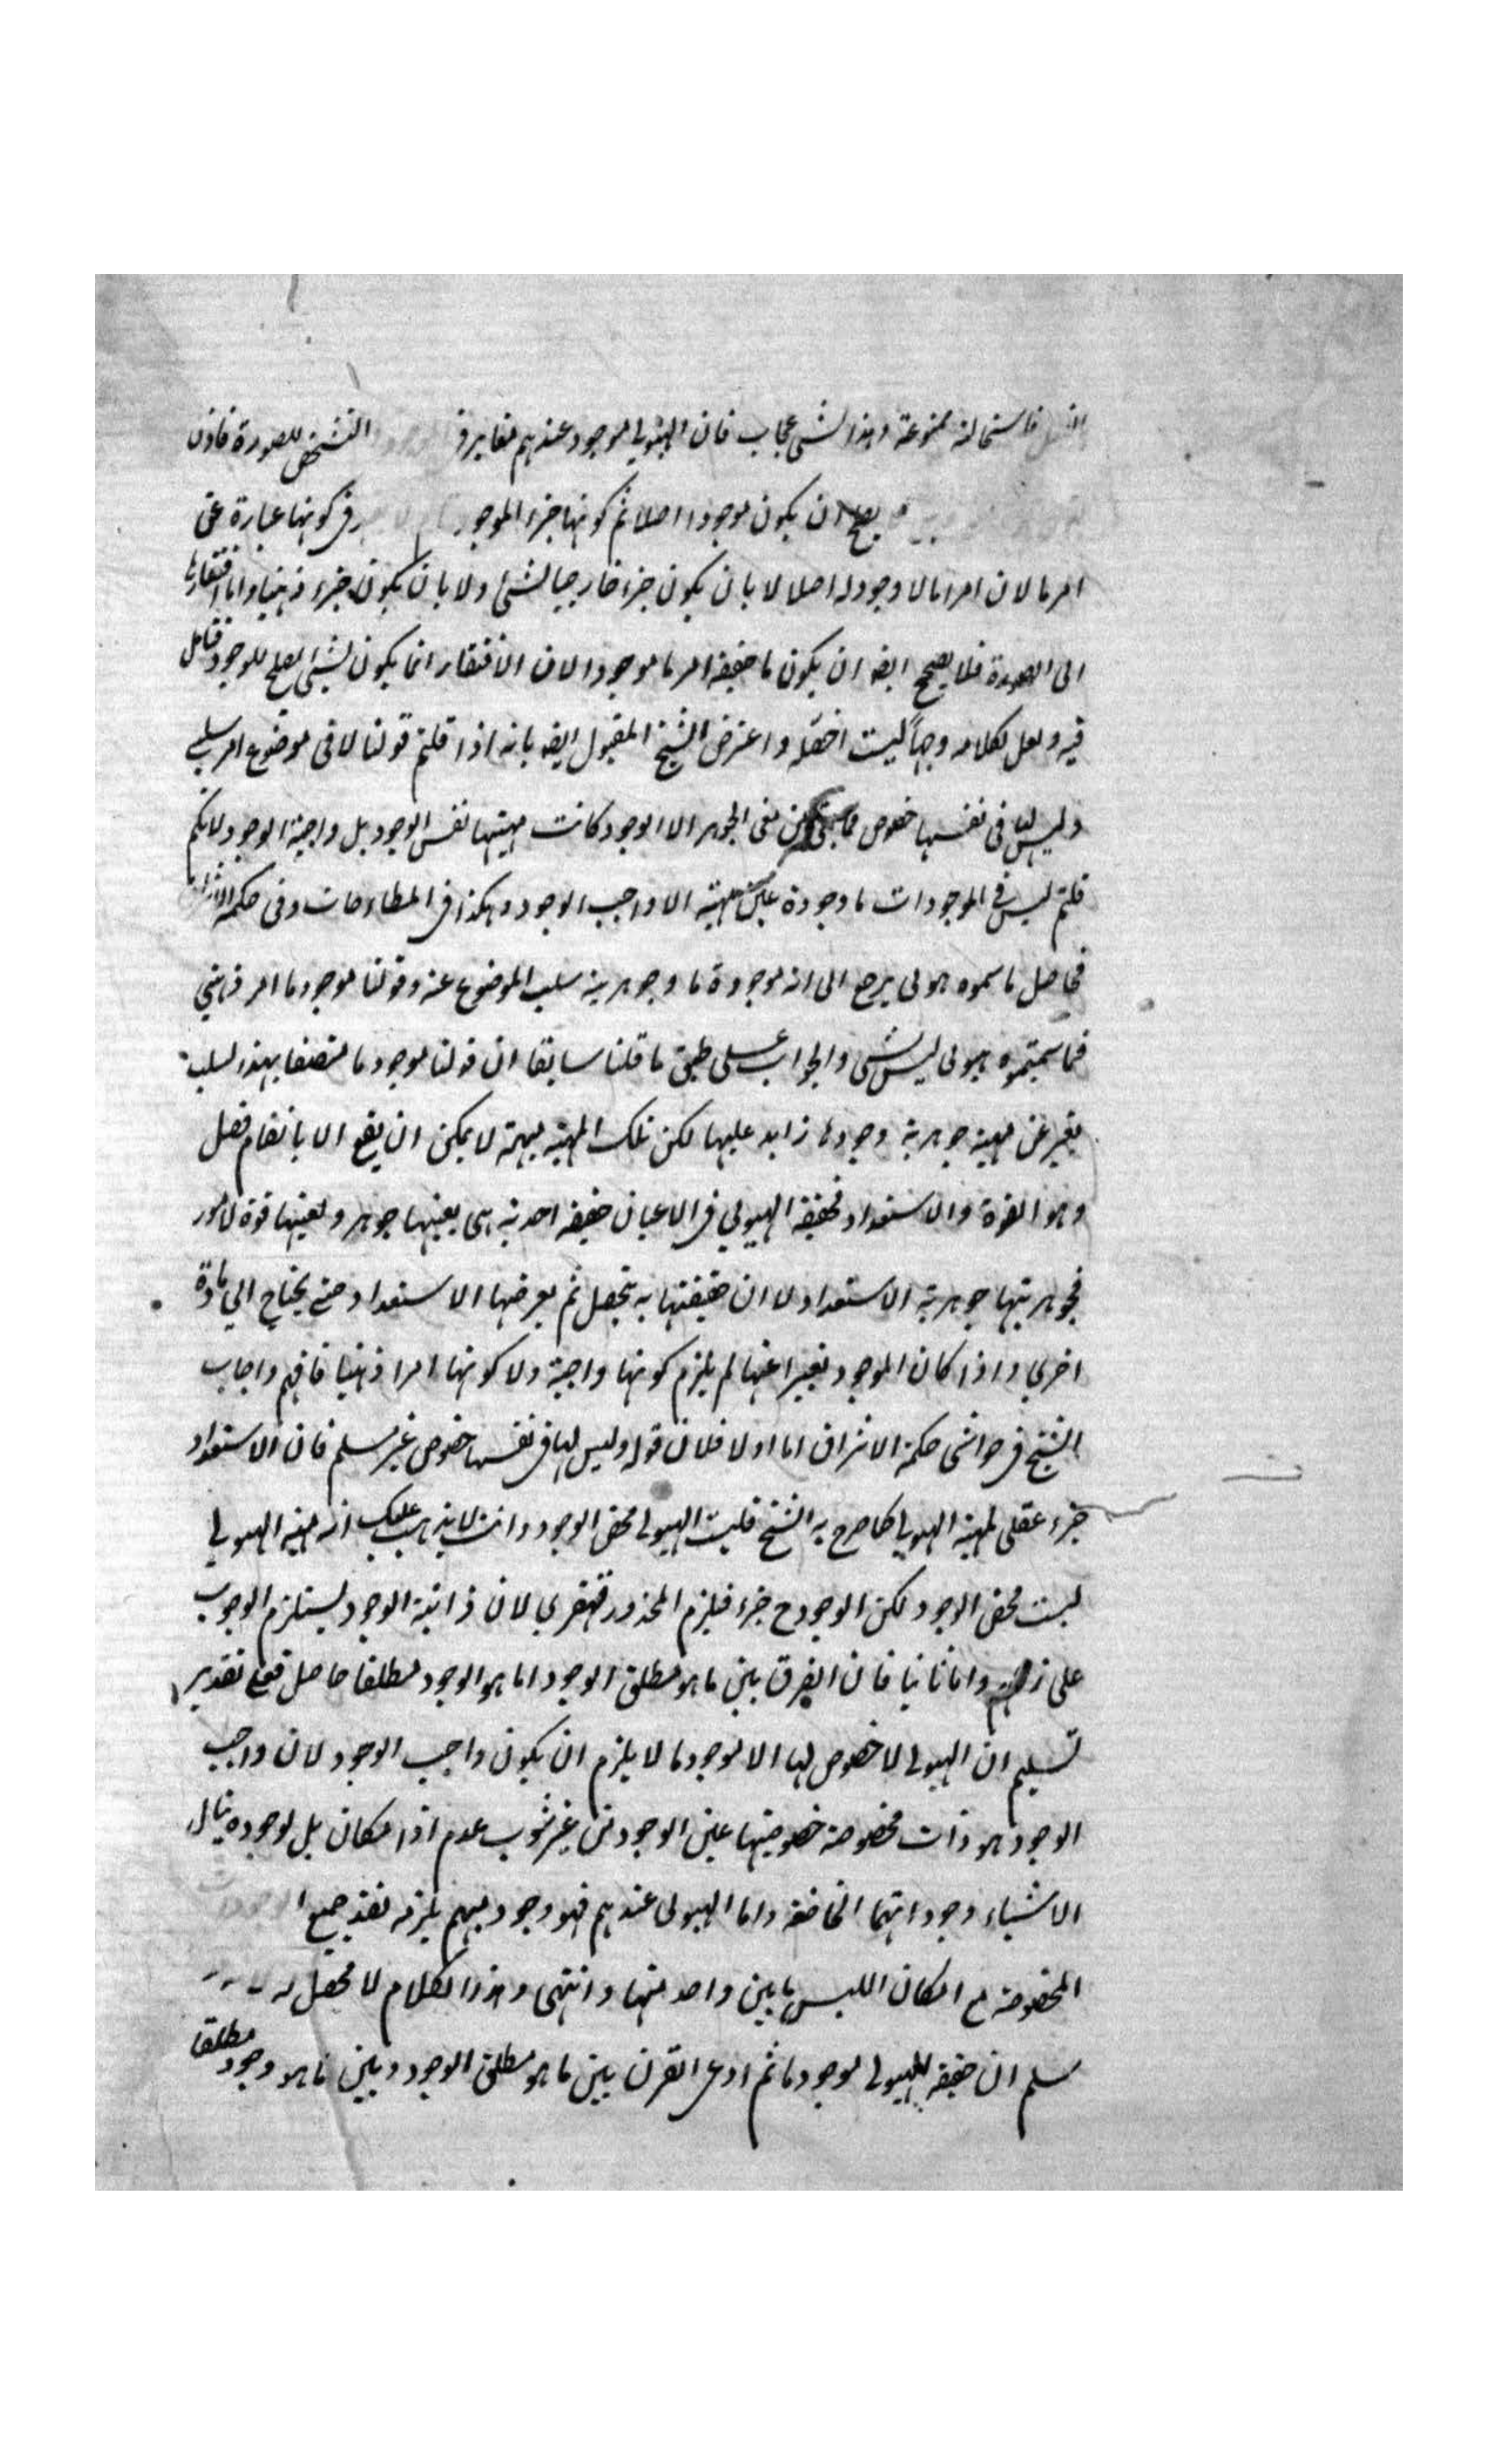 فاستحالته ممنوعة وهذا لشئ عجاب فان الهيولى موجود عندهم مغاير في التشخص للصورة فاذن
يصح ان يكون موجودا اصلا ثم كونها جزء الموجود في كونها عبارة عن
امر ما لان امرا ما لا وجود له اصلا لا بان يكون جزء خارجيا لشئ ولا بان يكون جزء ذهنيا واما افتقارها
الى الصورة فلا يصحح ايضه ان يكون ما حقيقة امر ما موجودا لان الافتقار انما يكون لشئ يصلح للوجود فتامل
فيه ولعل لكلامه وجها لست احصله واعترض الشيخ المقبول ايضه بانه اذا قلتم قولنا لا في موضوع امر سلبي
وليس لها في نفسها خصوص فما بقي من معنى الجوهر الا الوجود كانت مهيتها نفس الوجود بل واجبة الوجود لانكم
قلتم ليس في الموجودات ما وجوده عين مهيته الا واجب الوجود وهكذا في المطارحات وفى حكمة الاشراق
فحاصل ما سموه هولى يرجع الى انه موجودة ما وجوهرية سلب الموضوع عنه وقولنا موجود ما امر ذهني
فما سميتموه هيولى ليس بشئ والجواب على طبق ما قلنا سابقا ان قولنا موجود ما متصفا بهذا السلب
تعبير عن مهية جوهرية وجودها زايد عليها لكن تلك المهية مبهمة لا يمكن ان يقع الا بانضام فصل
وهو القوة والاستعداد فحقيقة الهيولي في الاعيان حقيقة احدية هى بعينها جوهر وبعينها قوة لامور
فجوهريتها جوهرية الاستعداد لا ان حقيقتها به يتحصل ثم يعرضها الاستعداد حتى يحتاج الي مادة
اخرى واذا كان الموجود تعبيرا عنها لم يلزم كونها واجبة ولا كونها امرا ذهنيا فافهم واجاب
الشيخ في حواشى حكمة الاشراق اما اولا فلان قوله وليس لها في نفسها خصوص غير مسلم فان الاستعداد
جزء عقلى لمهية الهيولى كما صرح به الشيخ فليت الهيولى محض الوجود وانت لا يذهب عليك انه مهية الهيولي
ليست محض الوجود لكن الوجود ح جزء فيلزم المحذور قهقرى لان ذاتية الوجود يستلزم الوجوب
على زعمهم واما ثانيا فان الفرق بين ما هو مطلق الوجود اما هو الوجود مطلقا حاصل فعلى تقدير
تسليم ان الهيولى لا خصوص لها الا موجود ما لا يلزم ان يكون واجب الوجود لان واجب
الوجود هو ذات مخصوصة خصوصيتها عين الوجود من غير شوب عدم اذ امكان بل لوجوده ينال
الاشياء وجوداتها الخاصة واما الهيولى عندهم فهو وجود مبهم يلزمه فقد جميع الوجودات
المخصوصة مع امكان اللبس باين واحد منها وانتهى وهذا الكلام لا محصل له
سلم ان حقيقة الهيولى موجود ما ثم ادعى الفرق بين ما هو مطلق الوجود وبين ما هو وجود مطلقا